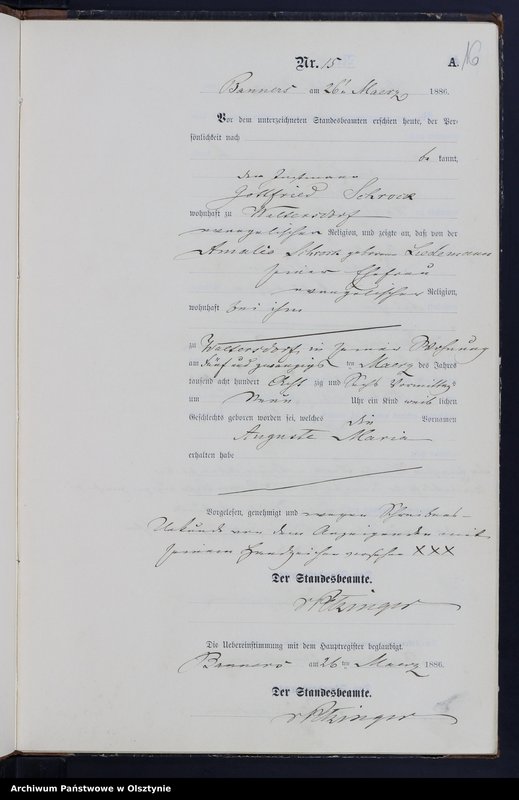 16
Nr. 15 A.
Banners am 26t Maerz 1886.
Vor dem unterzeichneten Standesbeamten erschien heute, der Per-
sönlichkeit nach
be kannt,
der
Gottfried Schrock
wohnhaft zu Waltersdorf
evangelischer Religion, und zeigte an, daß von der
Amalie Schrock geborene
seiner Ehefrau
evangelischer Religion,
wohnhaft bei ihm
zu Waltersdorf, in seiner Wohnung
am fünf und zwanzigs ten Maerz des Jahres
tausend acht hundert Acht zig und Sechs Vormittags
um Neun Uhr ein Kind weib lichen
Geschlechts geboren worden sei, welches die Vornamen
Auguste Maria
erhalten habe
Vorgelesen, genehmigt und wegen Schreibens-
Unkunde von dem Anzeigenden mit
seinem Handzeichen versehen XXX
Der Standesbeamte.
Die Uebereinstimmung mit dem Hauptregister beglaubigt.
Banners am 26ten Maerz 1886.
Der Standesbeamte.
Archiwum Państwowe w Olsztynie